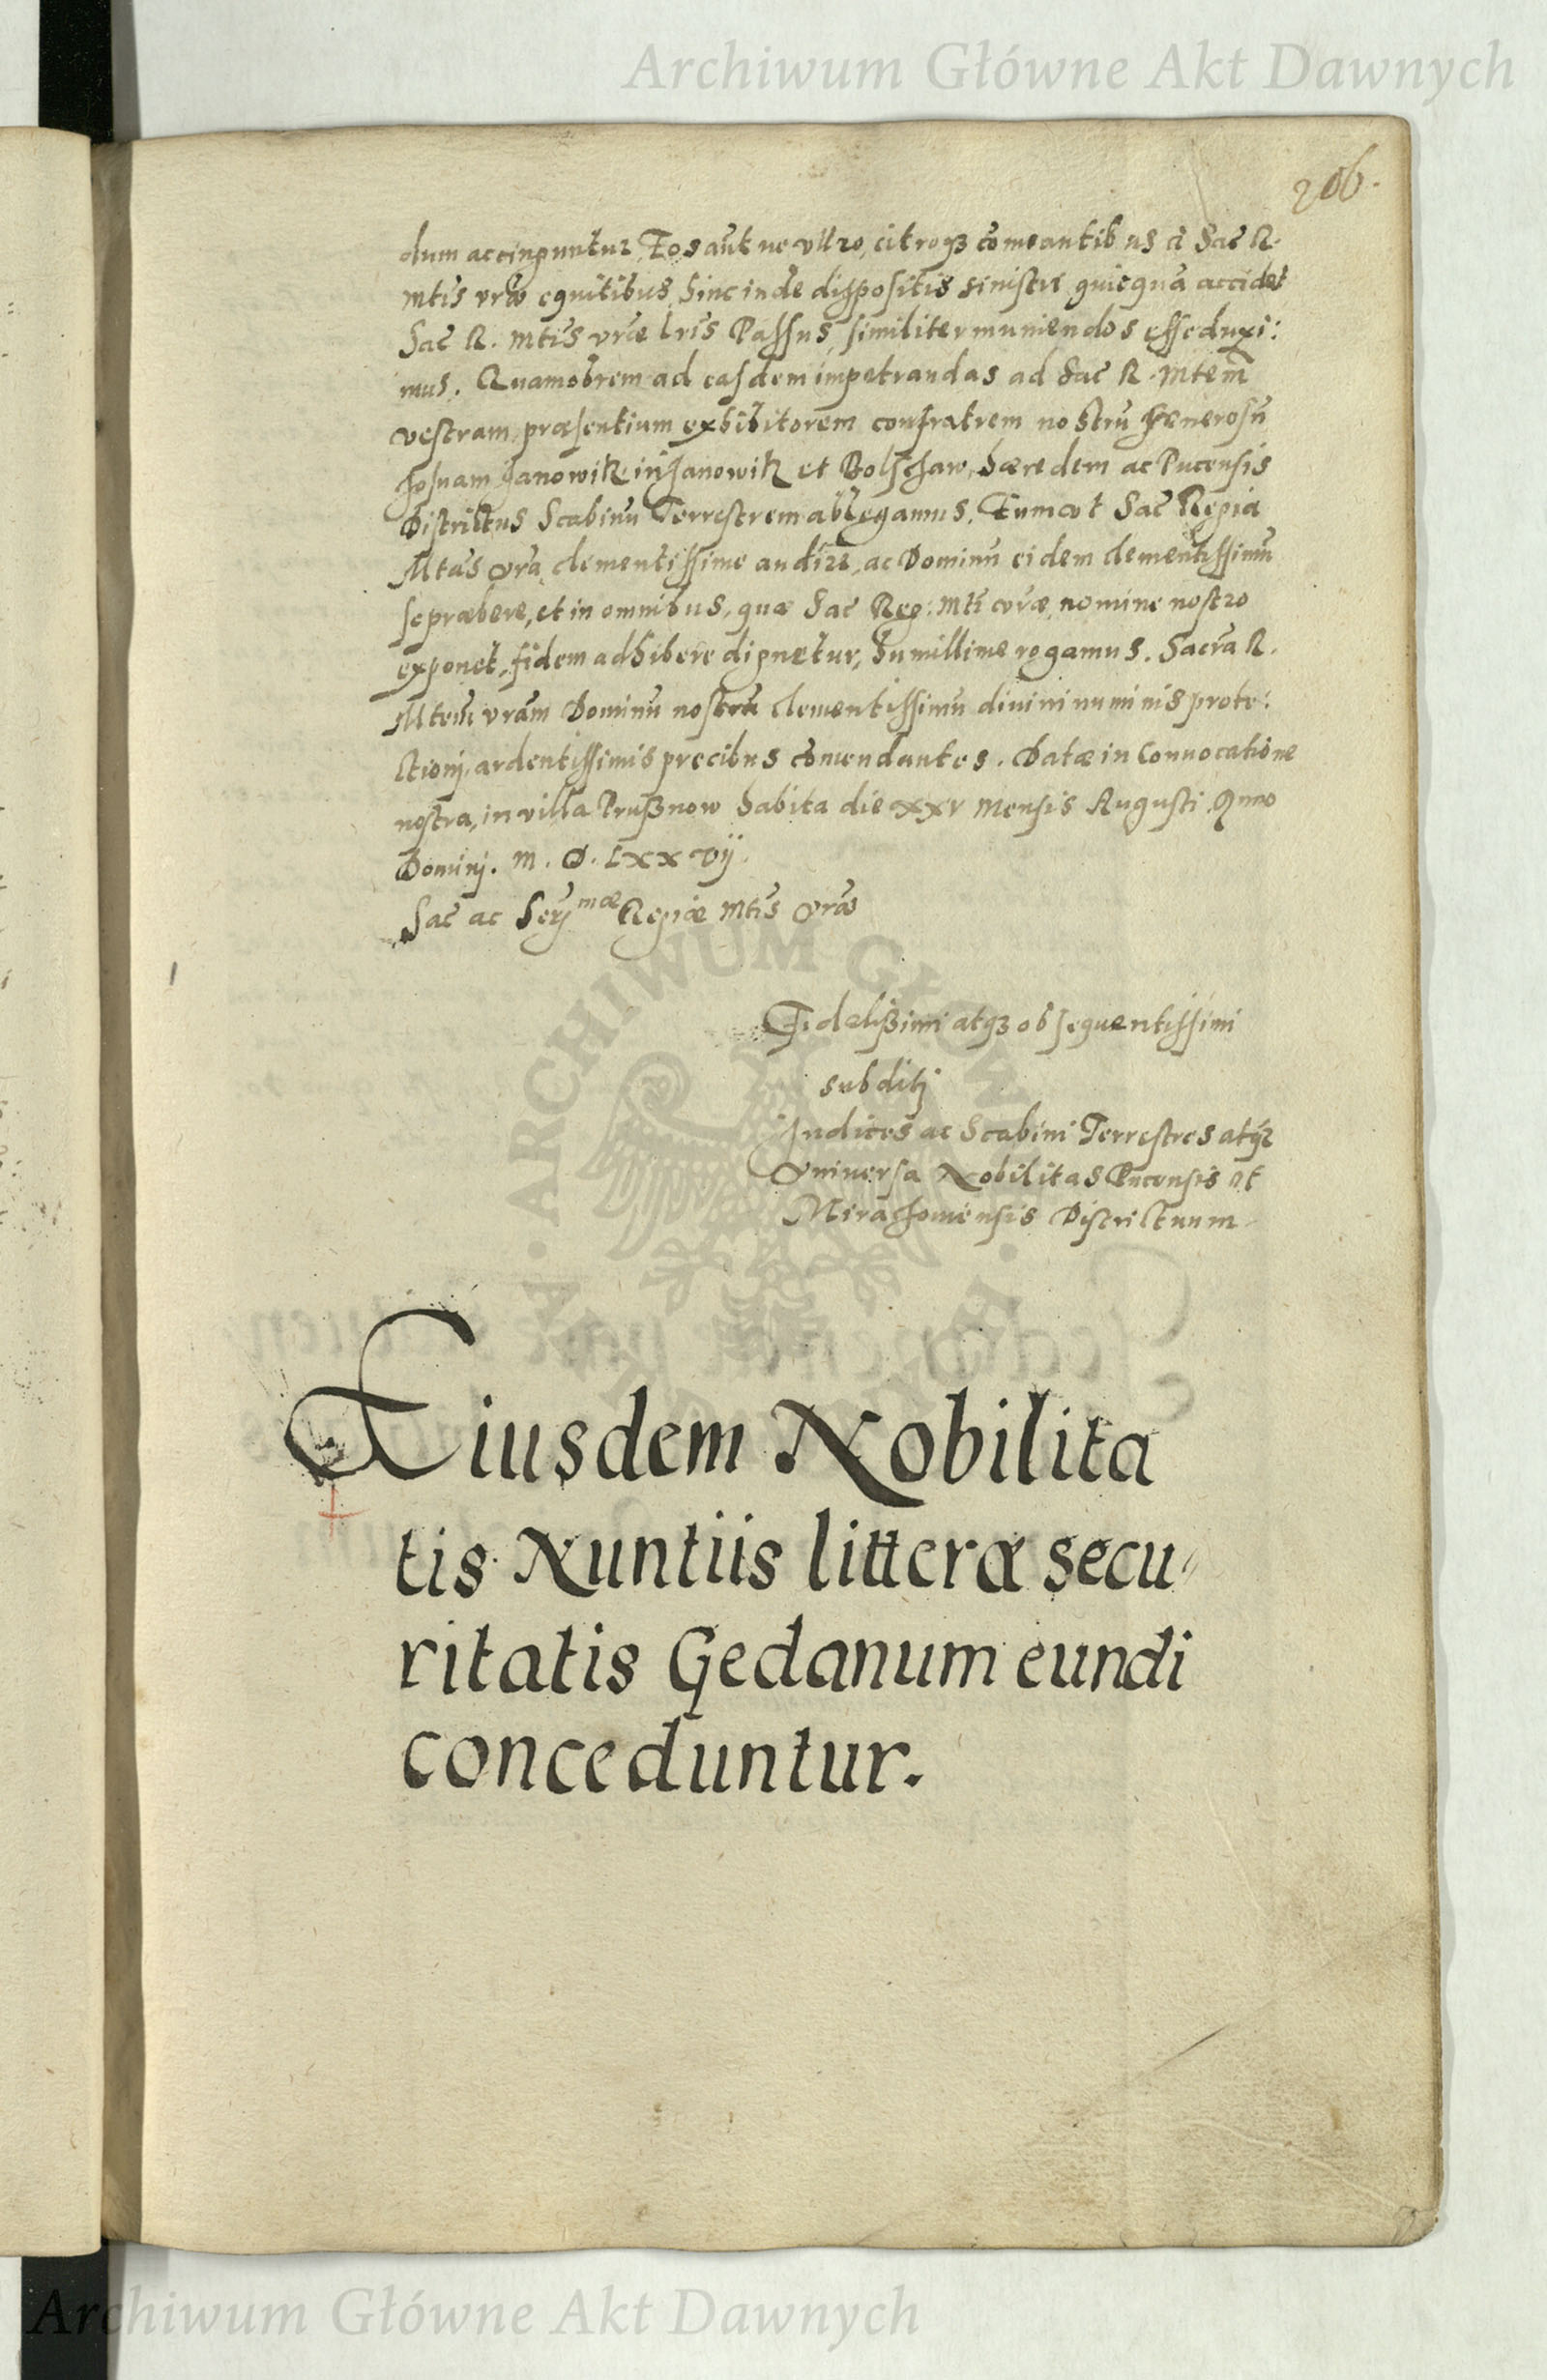 Archiwum Główne Akt Dawnych
206.
dum accinguntur, Eos aūt ne vltro, citroqȝ cōmeantibus à Sac̄ R.
Mtis vrae equitibus, hinc inde dispositis sinistri quicquā accidet
Sac̄ R. Mtis vrae lris Passus, similiter muniendos esse duxi:
mus. Quamobrem ad easdem impetrandas ad Sac̄ R. Mtem̄
vestram, praesentium exhibitorem confratrem nostrū Generosū
Josuam Janowitz in Janowitz et Bolschaw, haeredem ac Pucensis
Districtus Scabinū Terrestrem ablegamus. Eum vt Sac̄ Regia
Mtas vra clementissime audire, ac Dominū eidem clementissimū
se praebere, et in omnibus, quae Sac̄ Reg: Mti vrae nomine nostro
exponet, fidem adhibere dignetur, humillime rogamus. Sacra R.
Mtem vram Dominū nostrū clementissimū divini numinis prote:
ctionj, ardentissimis precibus cōmendantes. Datae in Convocatione
nostra, in villa Prusznow habita die xxv Mensis Augusti Anno
Dominj. M. D. Lxxvij.
Sac̄ ac Serⁿmae Regiae Mtis vrae
Fidelissimi atqȝ obsequentissimi
subditj
Judices ac Scabini Terrestres atqȝ
Vniversa Nobilitas Pucensis et
Mirachoviensis Districtuum
Eiusdem Nobilita
tis Nuntiis litterae secu
ritatis Gedanum eundi
conceduntur.
ARCHIWUM GŁÓWNE AKT DAWNYCH
Archiwum Główne Akt Dawnych